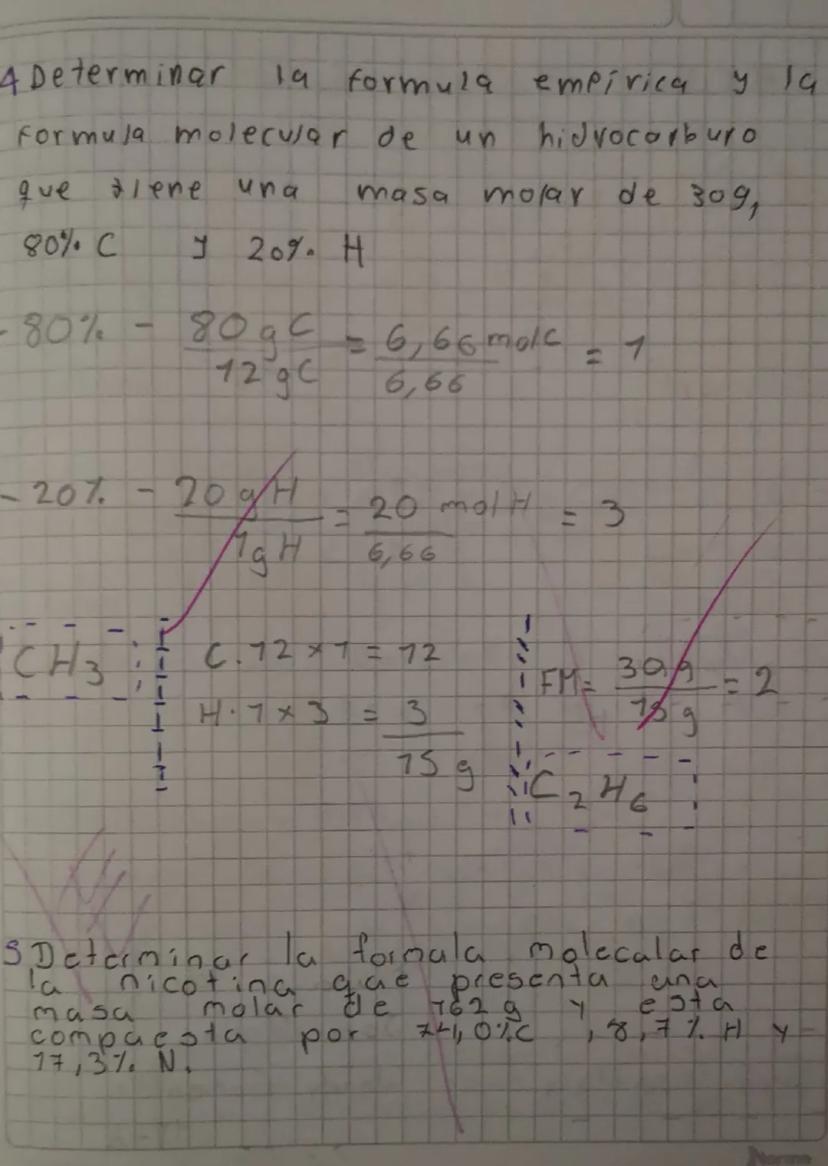 4 Determinar la formula empírica y la
formula molecular de un hidrocarburo
que tiene una masa molar de 30g,
80% C y 20% H
- 80% - 80gC / 12gC = 6,66 molC / 6,66 = 1
- 20% - 20gH / 1gH = 20 molH / 6,66 = 3
CH3
C. 12 x 1 = 12
H. 1 x 3 = 3
15 g
FM = 30g / 15g = 2
C2H6
5 Determinar la formula molecular de
la nicotina que presenta una
masa molar de 162g y esta
compuesta por 74,0%C, 8,7% H y
17,3% N.
Norma